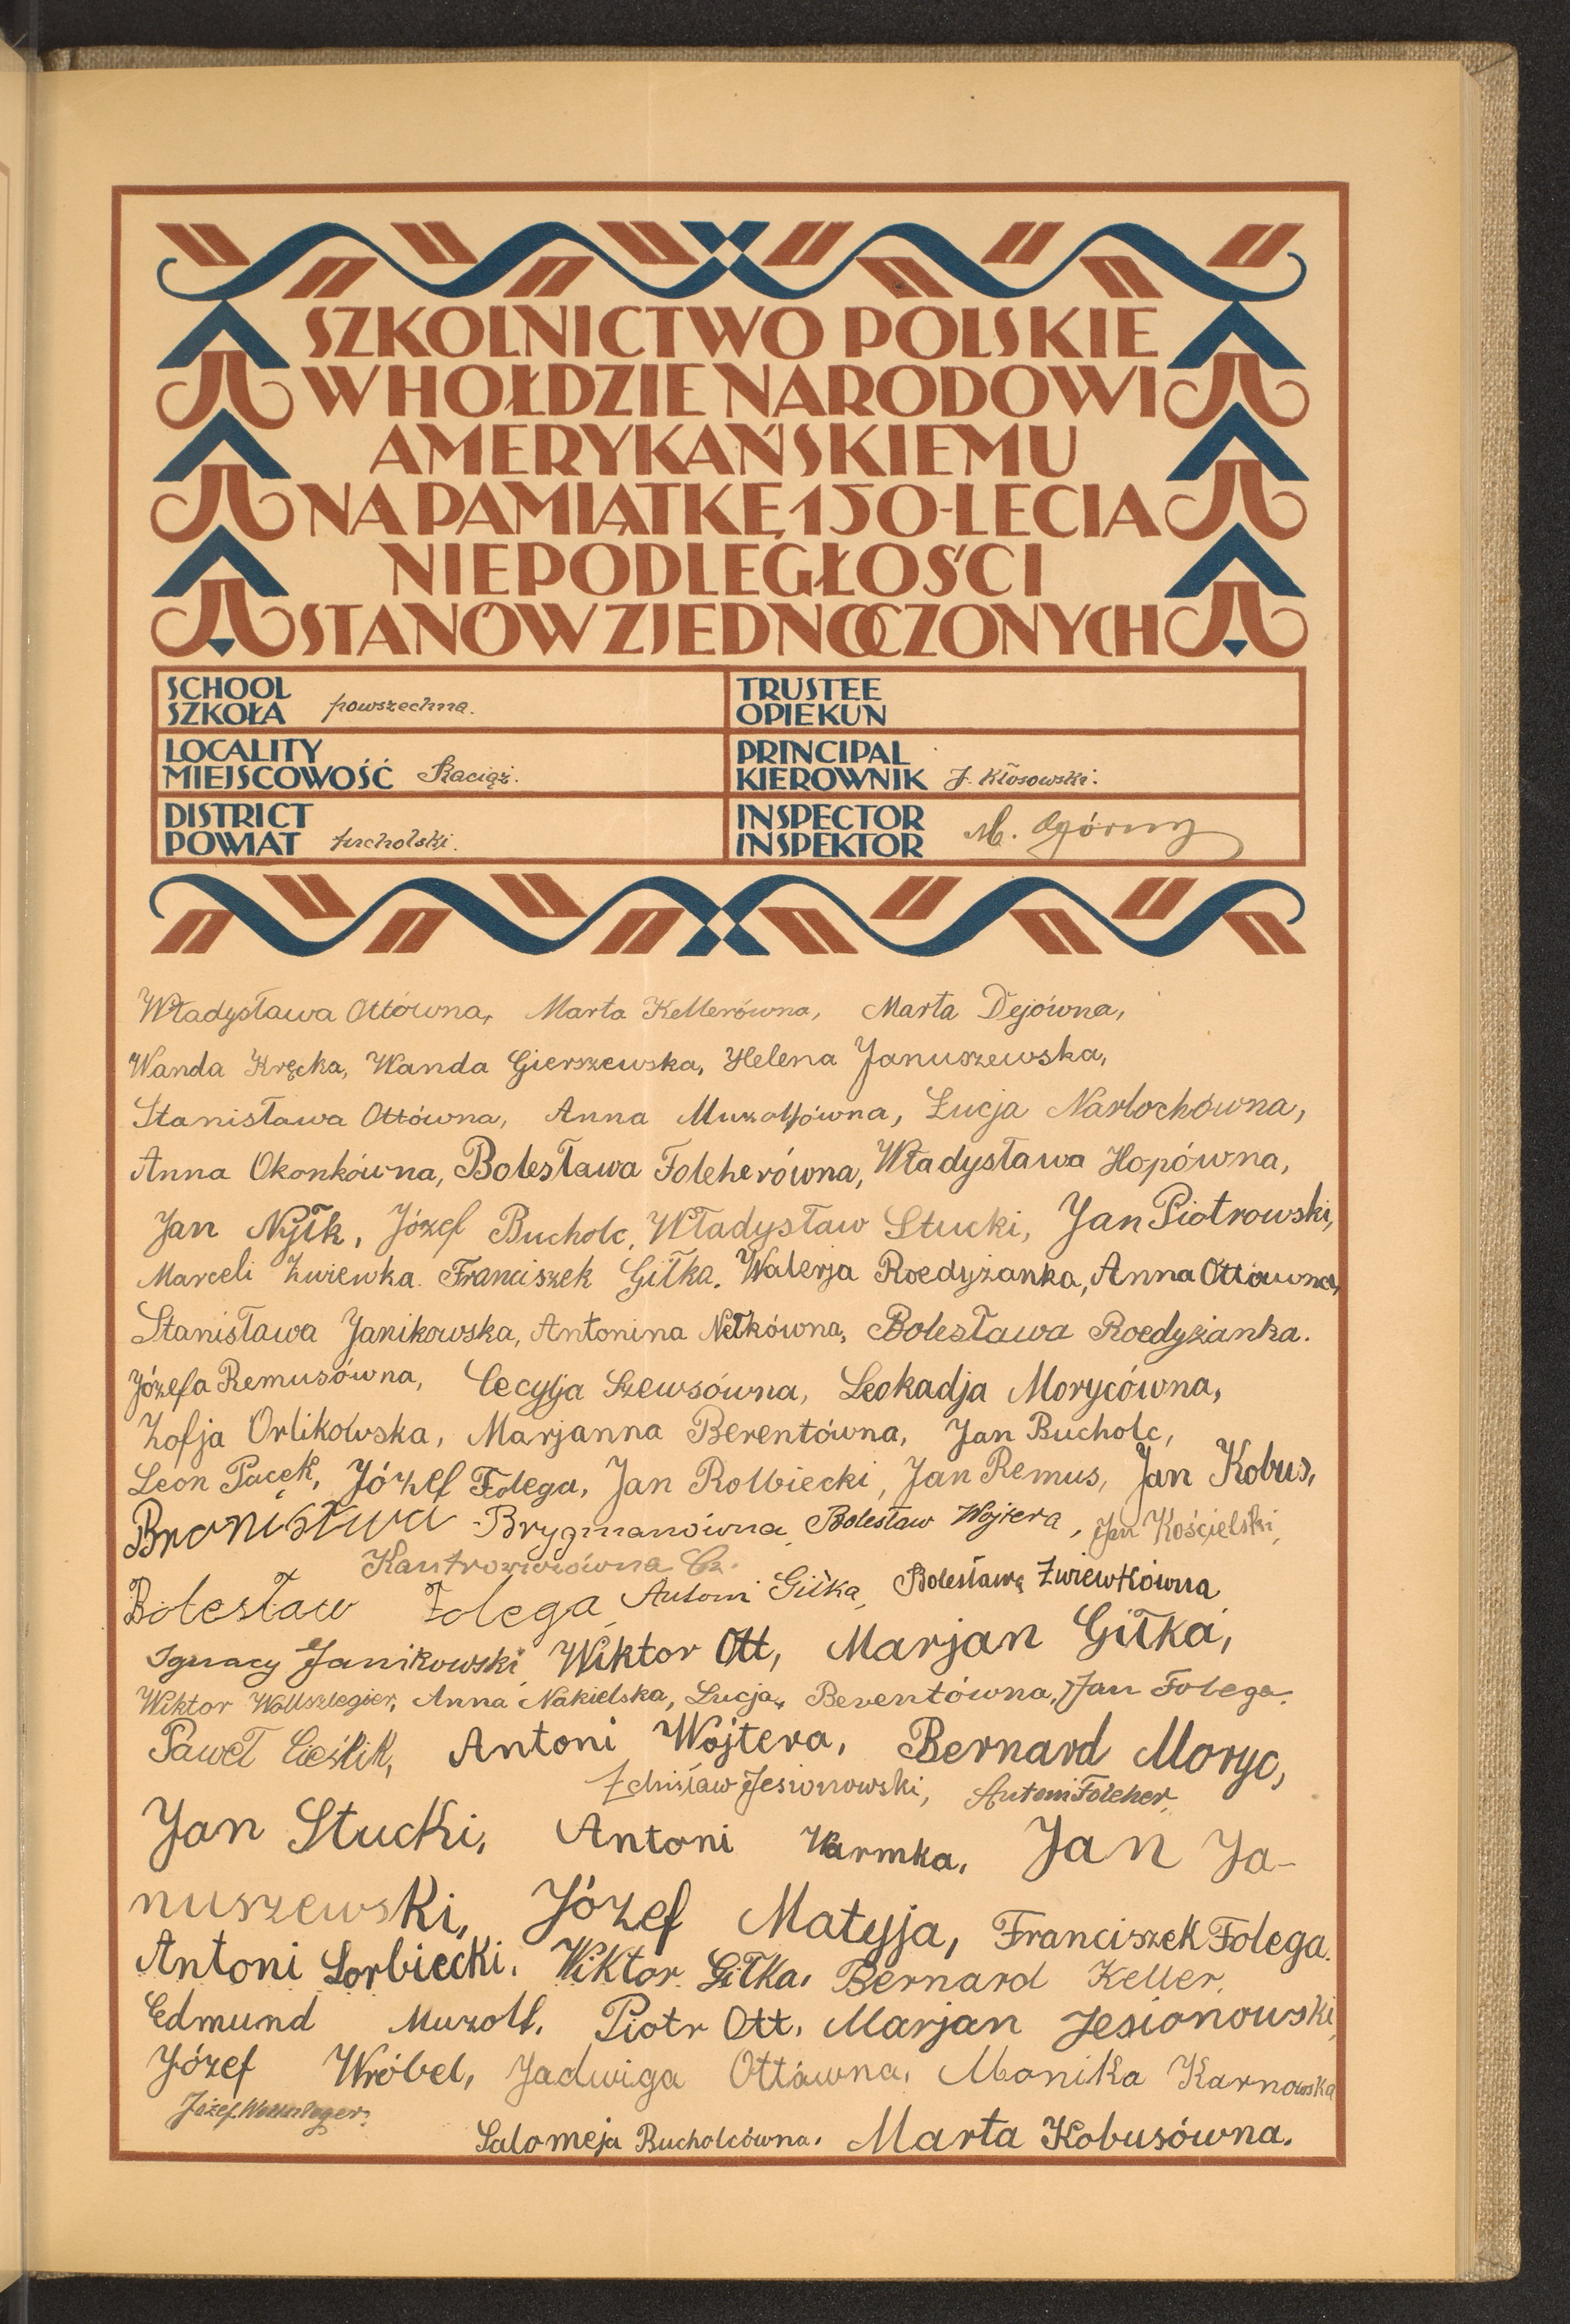 SZKOLNICTWO POLSKIE
W HOŁDZIE NARODOWI
AMERYKAŃSKIEMU
NA PAMIĄTKĘ 150-LECIA
NIEPODLEGŁOŚCI
STANÓW ZJEDNOCZONYCH
SCHOOL
SZKOŁA powszechna.
TRUSTEE
OPIEKUN
LOCALITY
MIEJSCOWOŚĆ Raciąż.
PRINCIPAL
KIEROWNIK J. Kłosowski.
DISTRICT
POWIAT tucholski.
INSPECTOR
INSPEKTOR M. Ogórny
Władysława Ottówna, Marta Kellerówna, Marta Dejówna,
Wanda Kręcka, Wanda Gierszewska, Helena Januszewska,
Stanisława Ottówna, Anna Muzolfówna, Łucja Narlochówna,
Anna Okonkówna, Bolesława Foleherówna, Władysława Hopówna,
Jan Nyłk, Józef Bucholc, Władysław Stucki, Jan Piotrowski,
Marceli Żwiewka. Franciszek Giłka. Walerja Roedyżanka, Anna Ottówna,
Stanisława Janikowska, Antonina Nełkówna, Bolesława Roedyżanka.
Józefa Remusówna, Cecylja Szewsówna, Leokadja Morycówna,
Zofja Orlikowska, Marjanna Berentówna, Jan Bucholc,
Leon Pacek, Józef Folega, Jan Rolbiecki, Jan Remus, Jan Kobus,
Bronisława Brygmanówna, Bolesław Wojtera, Jan Kościelski,
Cz.
Bolesław Folega, Antoni Giłka, Bolesława Żwiewkówna
Ignacy Janikowski, Wiktor Ott, Marjan Giłka,
Wiktor Wollszlegier, Anna Nakielska, Łucja, Berentówna, Jan Folega.
Paweł Cieślik, Antoni Wojtera, Bernard Moryc,
Zdzisław Jesionowski, Antoni Foleher,
Jan Stucki, Antoni Warmka, Jan Ja-
nuszewski, Józef Matyja, Franciszek Folega.
Antoni Lorbiecki, Wiktor Giłka, Bernard Keller,
Edmund Muzolf, Piotr Ott, Marjan Jesionowski,
Józef Wróbel, Jadwiga Ottówna, Monika Karnowska
Józef
Salomeja Bucholcówna, Marta Kobusówna.